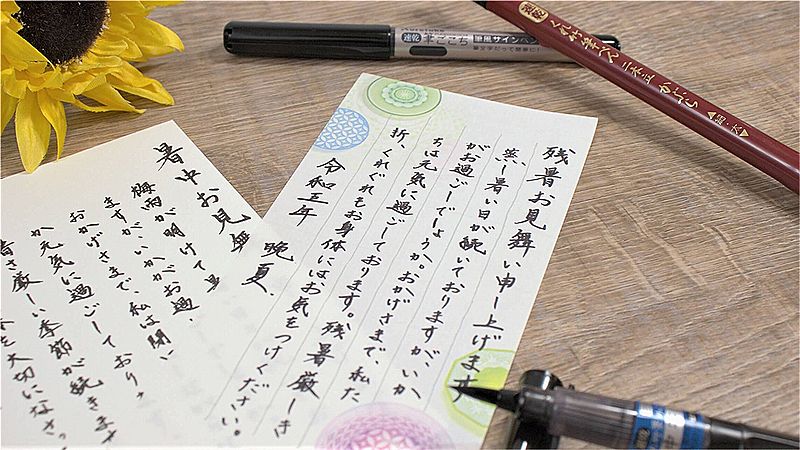 残暑お見舞い申し上げます
蒸し暑い日が続いておりますが、いか
がお過ごしでしょうか。おかげさまで、私た
ちは元気に過ごしております。残暑厳しき
折、くれぐれもお身体にはお気をつけください。
令和三年
晩夏
暑中お見舞
梅雨が明けて
ますが、いかがお過
おかげさまで、私は
か元気に過ごしており
暑さ厳しい季節が続きます
を大切になさっ
速乾
筆サインペン
くれ竹筆ぺん二本立かぶら